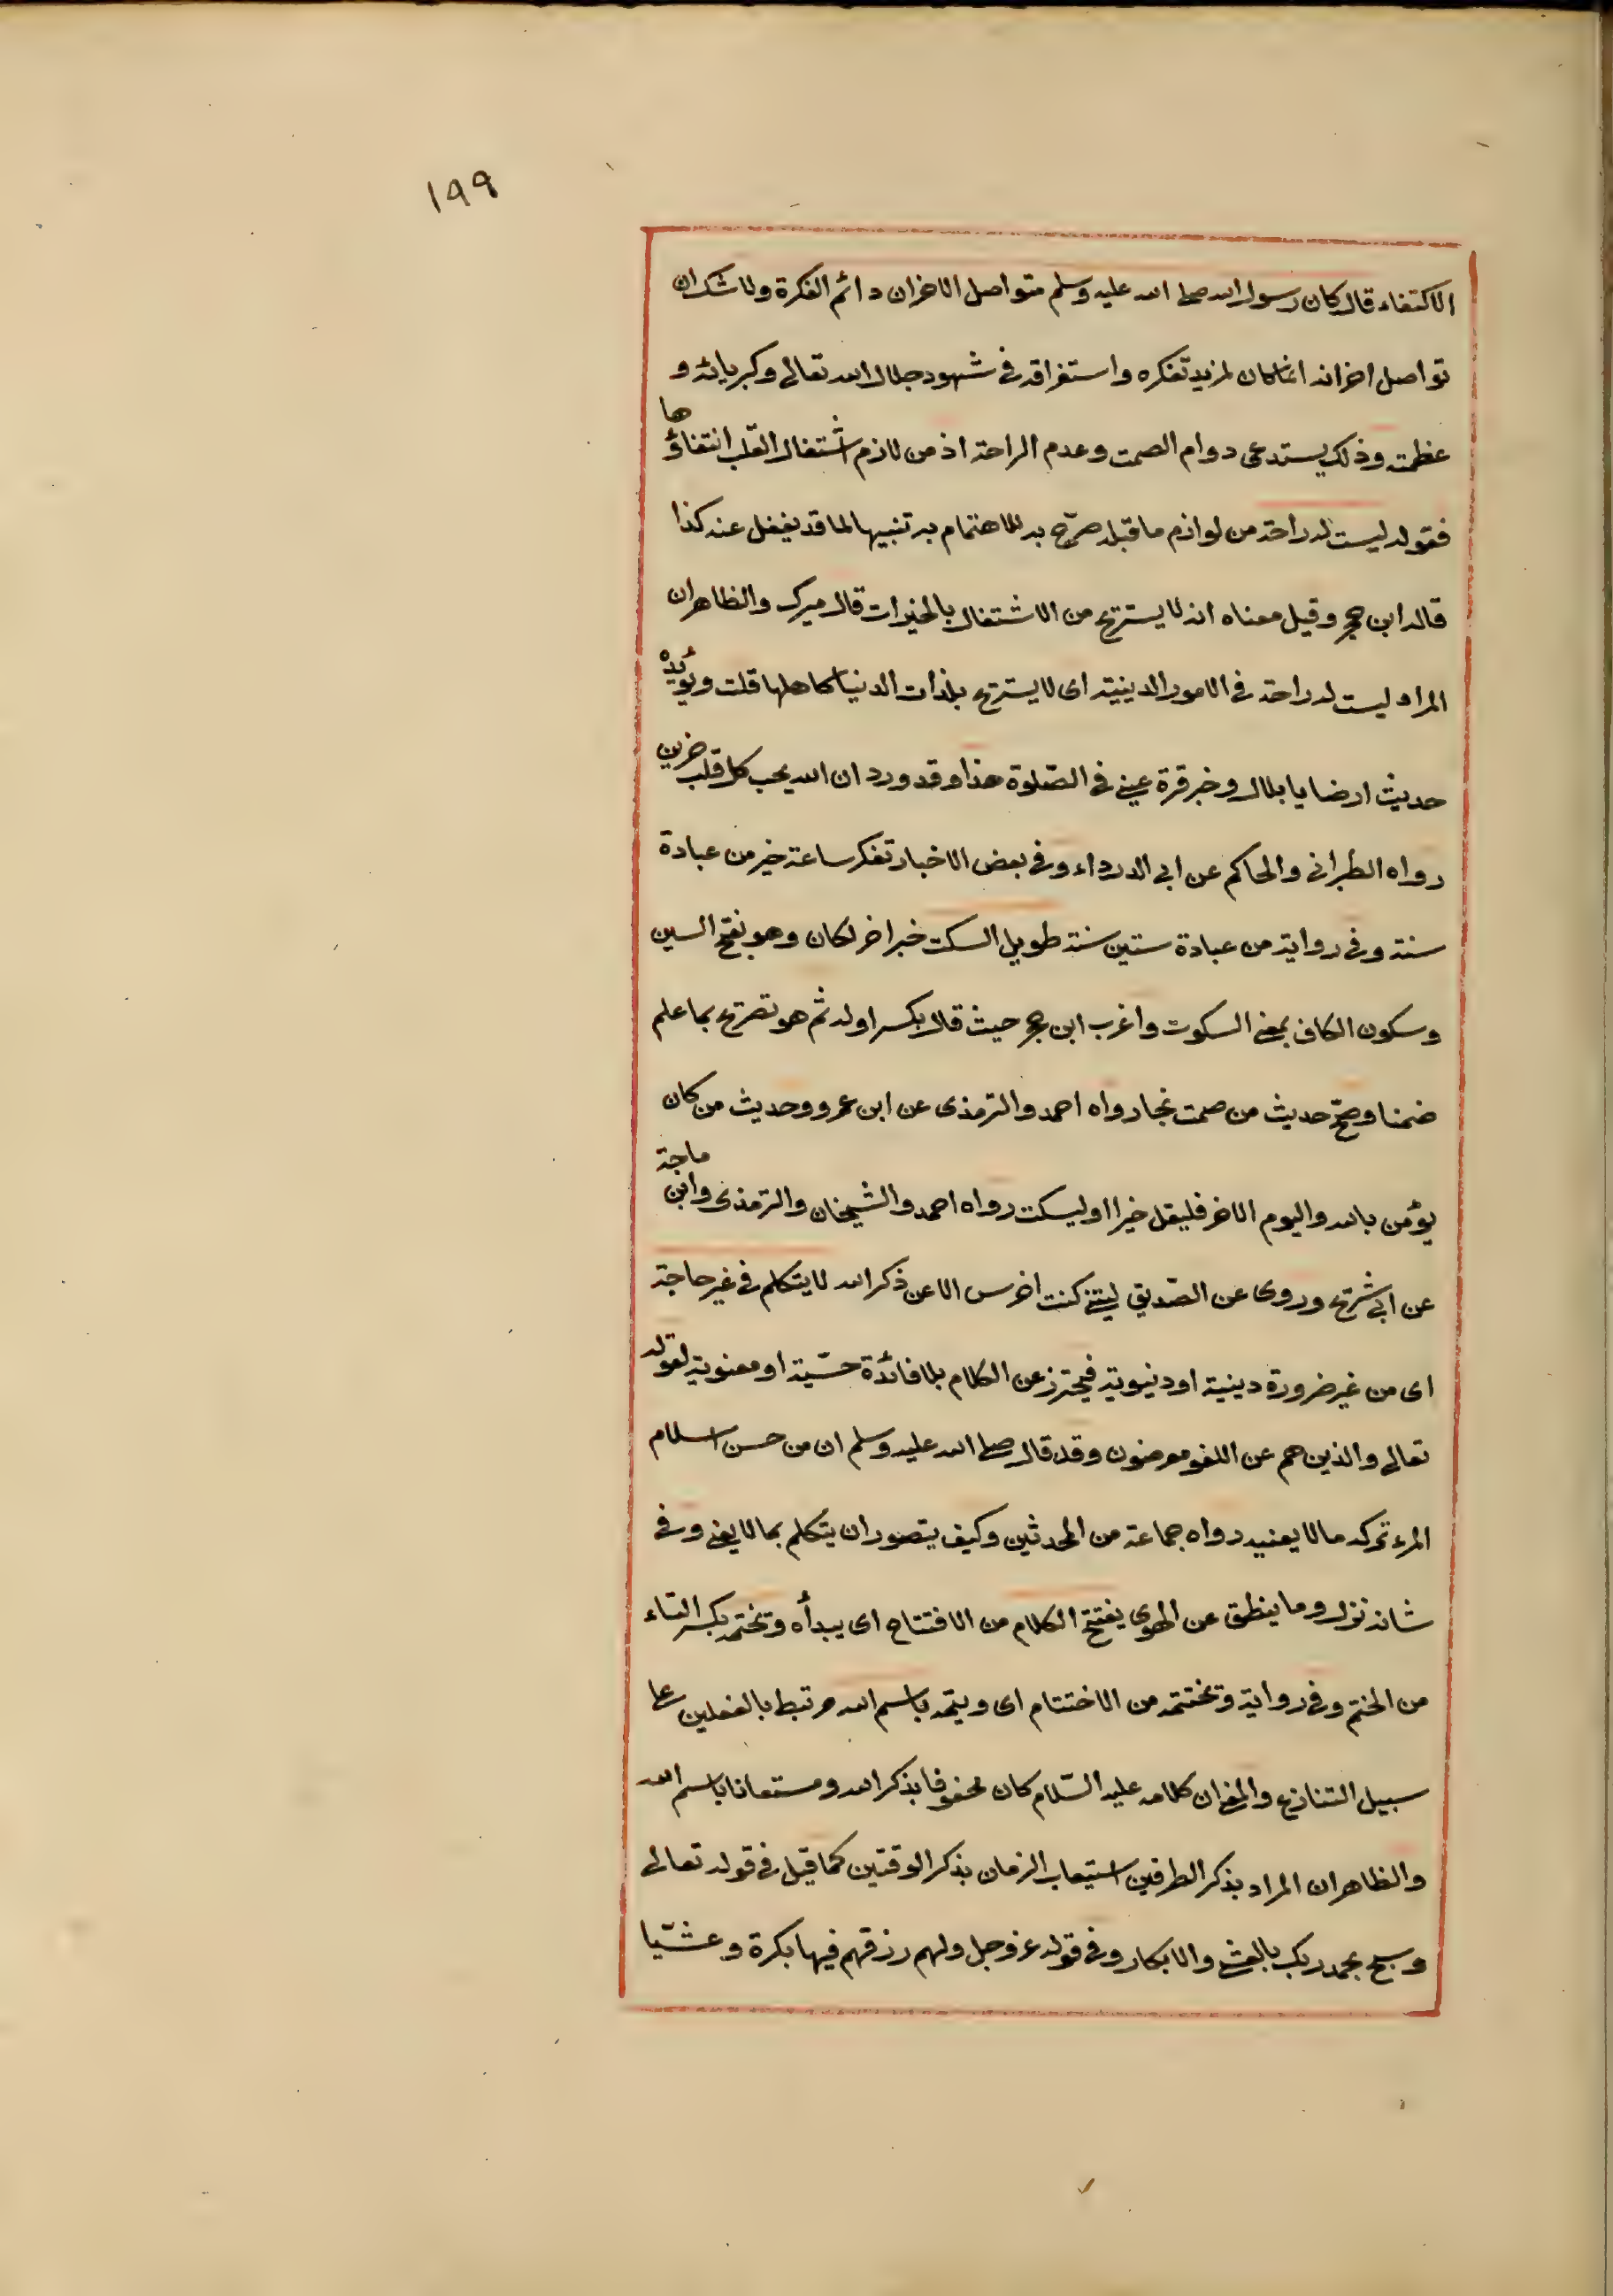 ١٩٩
الاكتفاء قال كان رسول الله صلى الله عليه وسلم متواصل الاخزان دائم الفكرة ولا شك ان
تواصل اخزانه انما كان لمزيد تفكره واستغراقه فى شهود جلال الله تعالى وكبريائه و
عظمته وذلك يستدعى دوام الصمت وعدم الراحة اذ من لازم اشتغال القلب انتفاؤها
فقوله ليست له راحة من لوازم ما قبله صرّح به للاهتمام به تنبيها لما قد يغفل عنه كذا
قاله ابن حجر وقيل معناه انه لا يستريح من الاشتغال بالخيرات قال ميرك والظاهر ان
المراد ليست له راحة فى الامور الدينية اى لا يستريح بلذات الدنيا كاهلها قلت ويؤيده
حديث ارضا يا بلال وخبر قرة عينى فى الصّلوة هذا وقد ورد ان الله يحب كل قلب حزين
رواه الطبرانى والحاكم عن ابى الدرداء وفى بعض الاخبار تفكر ساعة خير من عبادة
سنة وفى رواية من عبادة ستين سنة طويل السكت خبر اخر لكان وهو بفتح السين
وسكون الكاف بمعنى السكوت واغرب ابن حجر حيث قال بكسر اوله ثم هو تصريح بما علم
ضمنا وصحّ حديث من صمت نجا رواه احمد والترمذى عن ابن عمرو وحديث من كان
يؤمن بالله واليوم الاخر فليقل خيرا او ليسكت رواه احمد والشيخان والترمذى وابن ماجة
عن ابى شريح وروى عن الصّديق ليتنى كنت اخرس الا عن ذكر الله لا يتكلم فى غير حاجة
اى من غير ضرورة دينية او دنيوية فيحترز عن الكلام بلا فائدة حسّية او معنوية لقوله
تعالى والذين هم عن اللغو معرضون وقد قال صلى الله عليه وسلم ان من حسن اسلام
المرء تركه ما لا يعنيه رواه جماعة من المحدثين وكيف يتصور ان يتكلم بما لا يعنى وفى
شانه نزل وما ينطق عن الهوى يفتتح الكلام من الافتتاح اى يبدأه ويختمه بكسر التاء
من الختم وفى رواية ويختتمه من الاختتام اى ويتمه باسم الله مرتبط بالفعلين على
سبيل التنازع والمعنى ان كلامه عليه السّلام كان محفوفا بذكر الله ومستعانا باسم الله
والظاهر ان المراد بذكر الطرفين استيعاب الزمان بذكر الوقتين كما قيل فى قوله تعالى
وسبح بحمد ربك بالعشى والابكار وفى قوله عز وجل ولهم رزقهم فيها بكرة وعشّيا